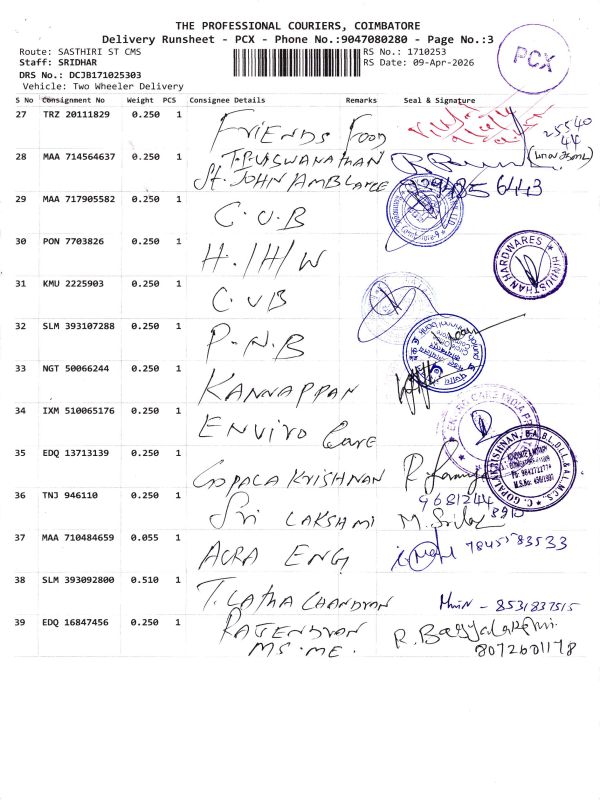 THE PROFESSIONAL COURIERS, COIMBATORE
Delivery Runsheet - PCX - Phone No.:9047080280 - Page No.:3
PCX
Route: SASTHIRI ST CMS
RS No.: 1710253
Staff: SRIDHAR
RS Date: 09-Apr-2026
DRS No.: DCJB171025303
Vehicle: Two Wheeler Delivery
S No Consignment No Weight PCS Consignee Details Remarks Seal & Signature
27 TRZ 20111829 0.250 1 FRIENDS FOOD
25540
28 MAA 714564637 0.250 1 T.P. VISWANATHAN
St. JOHN AMBLANCE
6443
29 MAA 717905582 0.250 1 C.U.B
30 PON 7703826 0.250 1 H./H/W
HINDUSTHAN HARDWARES
31 KMU 2225903 0.250 1 C.UB
32 SLM 393107288 0.250 1 P.N.B
33 NGT 50066244 0.250 1 KANNAPPAN
34 IXM 510065176 0.250 1 ENVIRO Care
35 EDQ 13713139 0.250 1 GOPALA KRISHNAN
C. GOPALAKRISHNAN, B.A.,B.L.,D.L.L.&A.L.,M.C.S.
36 TNJ 946110 0.250 1 Sri LAKSHMI
9681244
37 MAA 710484659 0.055 1 ACRA ENG
7845583533
38 SLM 393092800 0.510 1 T. LATHA CHANDRAN
8531837515
39 EDQ 16847456 0.250 1 RAJENDRAN
MS.ME.
R. Bagyalakshmi
8072601178